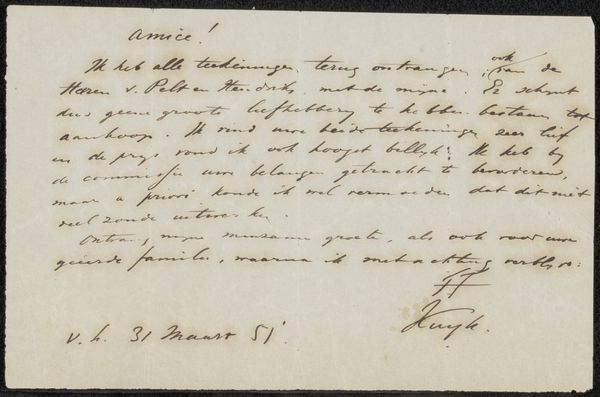 Amice!
Ik heb alle teekeningen terug ontvangen, ook van de
Heeren v. Pelt en Hendriks met de mijne. Er schijnt
dus geene groote liefhebberij te hebben bestaan tot
aankoop. Ik vind uwe beide teekeningen zeer lief
en de prijs vond ik ook hoogst billijk. Ik heb bij
de commissie uwe belangen getracht te bevorderen,
maar a priori konde ik wel vermoeden dat dit niet
veel zoude uitwerken.
Ontvang mijne groete, als ook voor uwe
geëerde familie, waarna ik met achting verblijve:
TT
Kuyk.
v. h. 31 Maart 51.